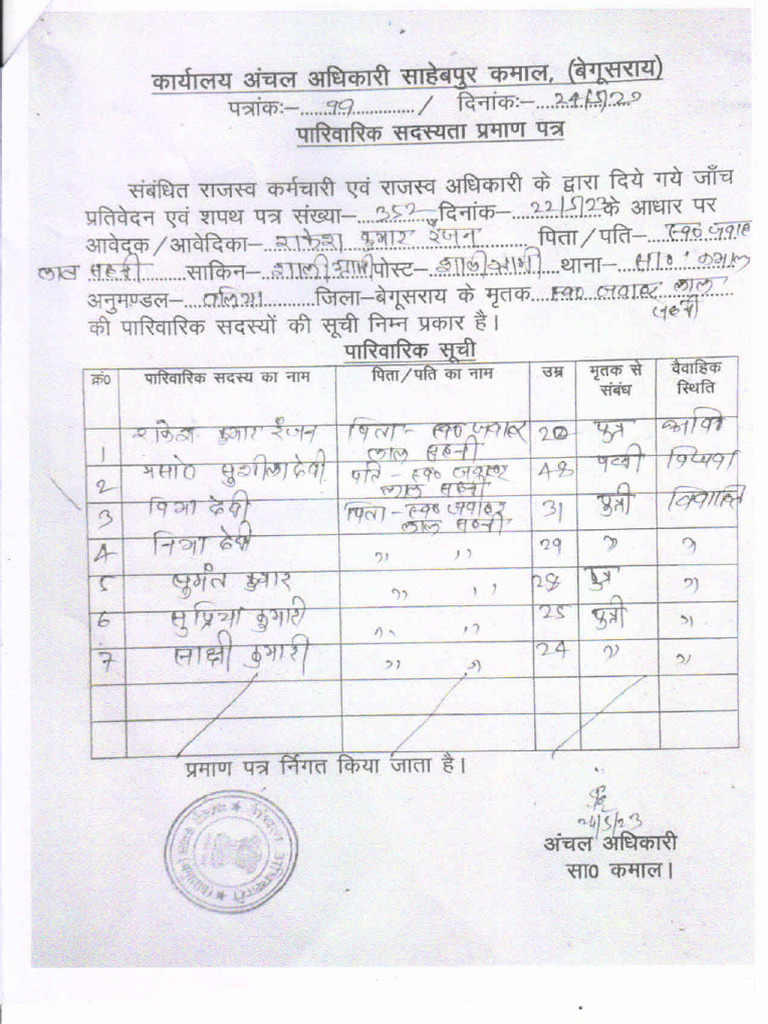 कार्यालय अंचल अधिकारी साहेबपुर कमाल, (बेगूसराय)
पत्रांकः– 99 / दिनांकः–
पारिवारिक सदस्यता प्रमाण पत्र
संबंधित राजस्व कर्मचारी एवं राजस्व अधिकारी के द्वारा दिये गये जाँच
प्रतिवेदन एवं शपथ पत्र संख्या– 352 दिनांक– 22/5/23 के आधार पर
आवेदक/आवेदिका– राकेश कुमार रंजन पिता/पति– स्व० जवाहर
लाल सहनी साकिन– शालीग्रामी पोस्ट– शालीग्रामी थाना– सा० कमाल
अनुमण्डल– बलिया जिला–बेगूसराय के मृतक स्व० जवाहर लाल
सहनी
की पारिवारिक सदस्यों की सूची निम्न प्रकार है।
पारिवारिक सूची
क्रं० पारिवारिक सदस्य का नाम पिता/पति का नाम उम्र मृतक से संबंध वैवाहिक स्थिति
1 राकेश कुमार रंजन पिता – स्व० जवाहर लाल सहनी 20 पुत्र
2 मसो० सुशीला देवी पति – स्व० जवाहर लाल सहनी 48 पत्नी विधवा
3 देवी पिता – स्व० जवाहर लाल सहनी 31 पुत्री विवाहित
4 देवी " " 29 " "
5 कुमार " " 28 पुत्र "
6 सुप्रिया कुमारी " " 25 पुत्री "
7 साक्षी कुमारी " " 24 " "
प्रमाण पत्र र्निगत किया जाता है।
24/5/23
अंचल अधिकारी
सा0 कमाल।